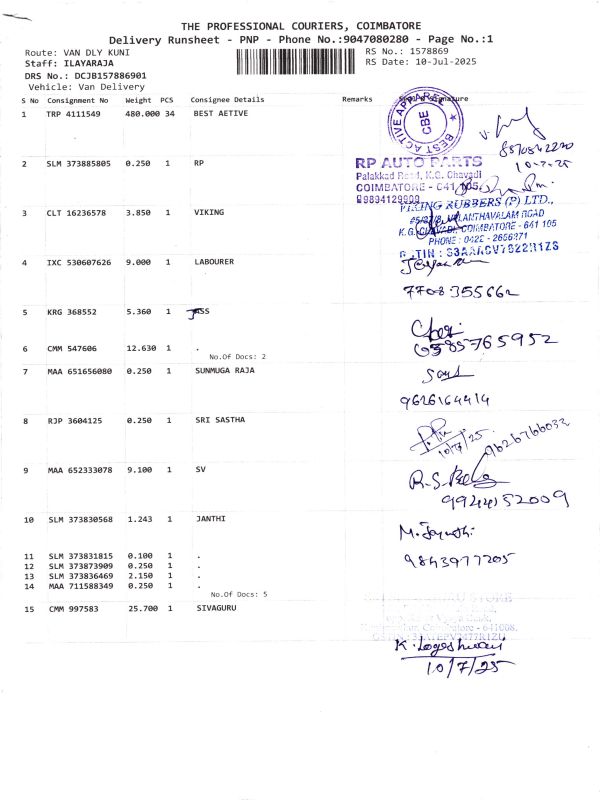 THE PROFESSIONAL COURIERS, COIMBATORE
Delivery Runsheet - PNP - Phone No.:9047080280 - Page No.:1
Route: VAN DLY KUNI
RS No.: 1578869
Staff: ILAYARAJA
RS Date: 10-Jul-2025
DRS No.: DCJB157886901
Vehicle: Van Delivery
S No Consignment No Weight PCS Consignee Details Remarks
1 TRP 4111549 480.000 34 BEST AETIVE
BEST ACTIVE APPAREL
CBE
8570542220
10-7-25
2 SLM 373885805 0.250 1 RP
RP AUTO PARTS
Palakkad Road, K.G. Chavadi
COIMBATORE - 641 105.
9894129909
3 CLT 16236578 3.850 1 VIKING
VIKING RUBBERS (P) LTD.,
COIMBATORE - 641 105
PHONE : 0422 - 2656271
4 IXC 530607626 9.000 1 LABOURER
7708355662
5 KRG 368552 5.360 1 JASS
6 CMM 547606 12.630 1 .
No.Of Docs: 2
7 MAA 651656080 0.250 1 SUNMUGA RAJA
9626164414
8 RJP 3604125 0.250 1 SRI SASTHA
10/7/25
9626766032
9 MAA 652333078 9.100 1 SV
9944152009
10 SLM 373830568 1.243 1 JANTHI
M. Jayanthi
9843977205
11 SLM 373831815 0.100 1 .
12 SLM 373873909 0.250 1 .
13 SLM 373836469 2.150 1 .
14 MAA 711588349 0.250 1 .
No.Of Docs: 5
15 CMM 997583 25.700 1 SIVAGURU
K. Logeshwari
10/7/25